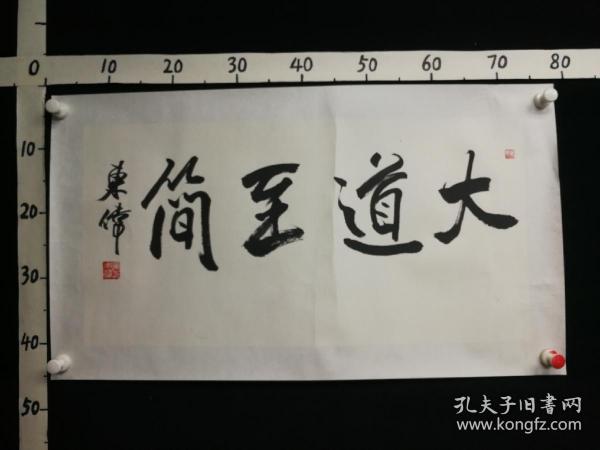 0 10 20 30 40 50 60 70 80
10
20
30
40
50
大道至简
东伟
孔夫子旧书网
www.kongfz.com